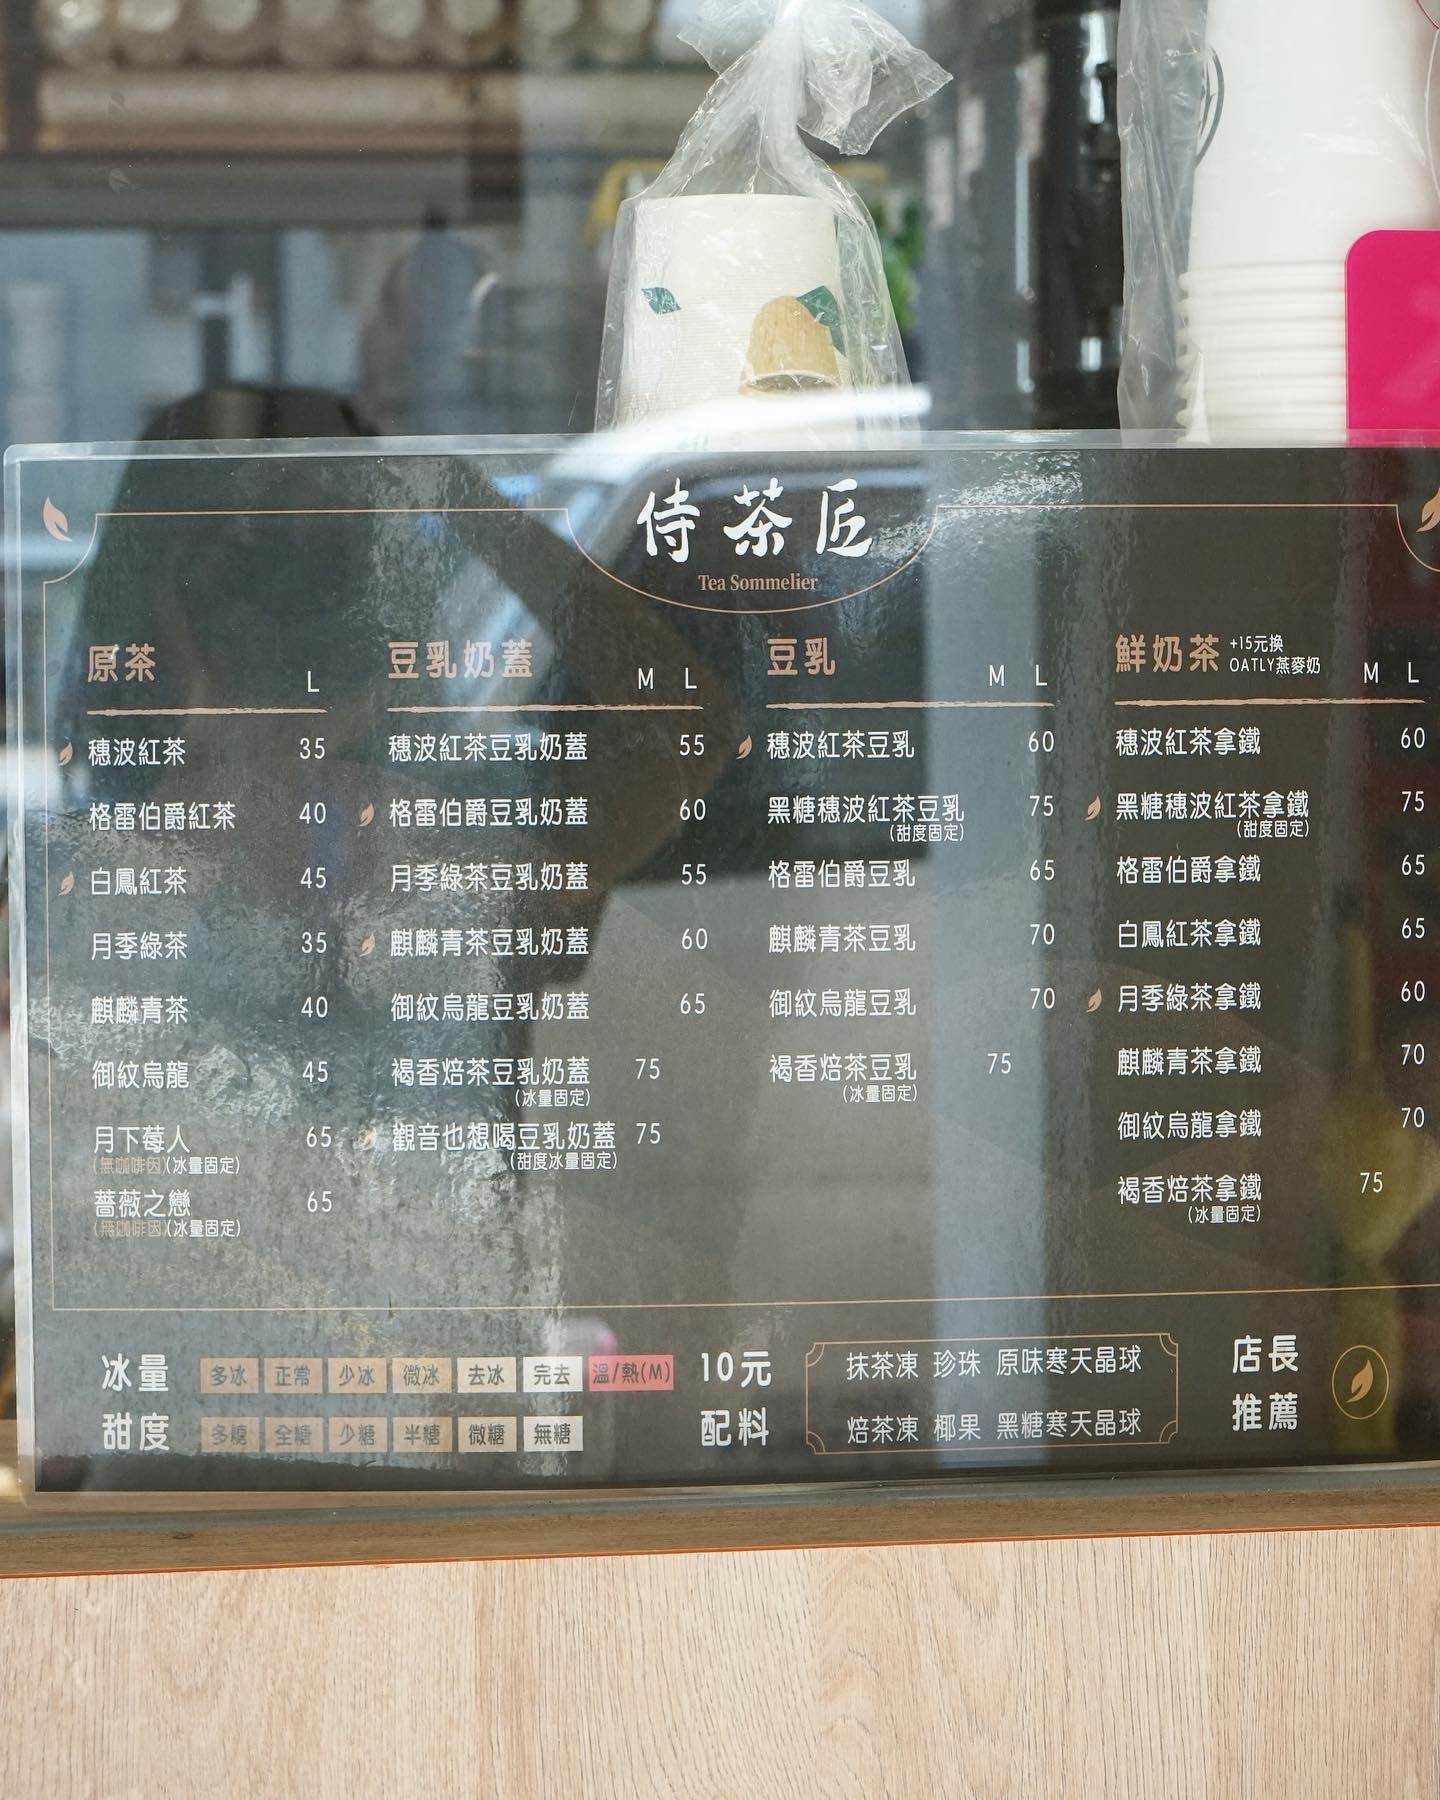 侍茶匠
Tea Sommelier
原茶 L
穗波紅茶 35
格雷伯爵紅茶 40
白鳳紅茶 45
月季綠茶 35
麒麟青茶 40
御紋烏龍 45
月下莓人 65
(無咖啡因)(冰量固定)
薔薇之戀 65
(無咖啡因)(冰量固定)
豆乳奶蓋 M L
穗波紅茶豆乳奶蓋 55
格雷伯爵豆乳奶蓋 60
月季綠茶豆乳奶蓋 55
麒麟青茶豆乳奶蓋 60
御紋烏龍豆乳奶蓋 65
褐香焙茶豆乳奶蓋 75
(冰量固定)
觀音也想喝豆乳奶蓋 75
(甜度冰量固定)
豆乳 M L
穗波紅茶豆乳 60
黑糖穗波紅茶豆乳 75
(甜度固定)
格雷伯爵豆乳 65
麒麟青茶豆乳 70
御紋烏龍豆乳 70
褐香焙茶豆乳 75
(冰量固定)
鮮奶茶 +15元換 M L
OATLY燕麥奶
穗波紅茶拿鐵 60
黑糖穗波紅茶拿鐵 75
(甜度固定)
格雷伯爵拿鐵 65
白鳳紅茶拿鐵 65
月季綠茶拿鐵 60
麒麟青茶拿鐵 70
御紋烏龍拿鐵 70
褐香焙茶拿鐵 75
(冰量固定)
冰量 多冰 正常 少冰 微冰 去冰 完去 溫/熱(M)
甜度 多糖 全糖 少糖 半糖 微糖 無糖
10元
配料
抹茶凍 珍珠 原味寒天晶球
焙茶凍 椰果 黑糖寒天晶球
店長
推薦